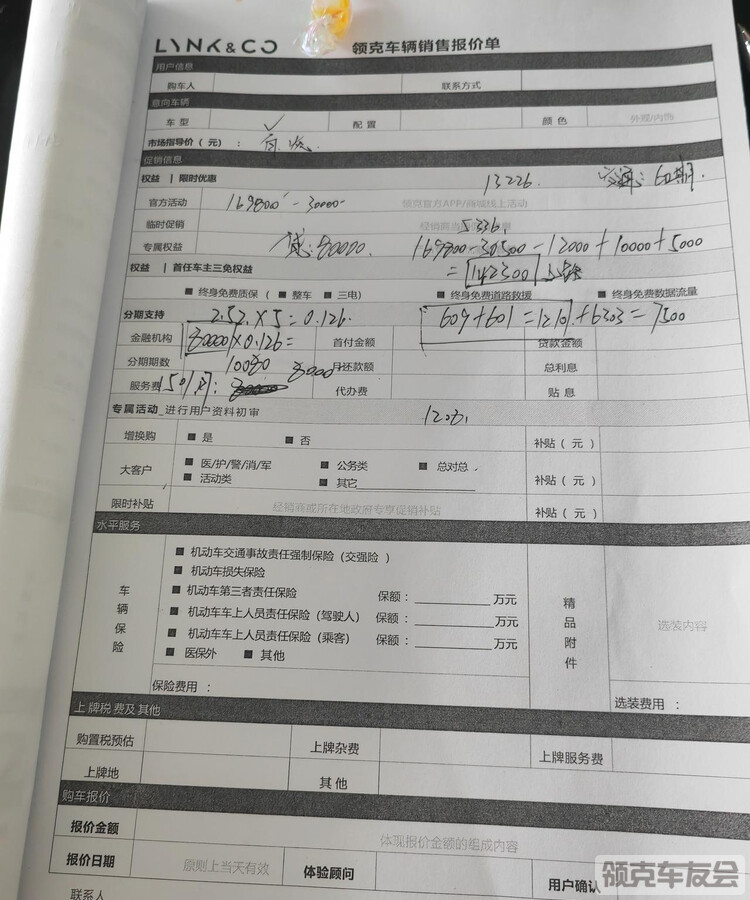 LYNK&CO 领克车辆销售报价单
用户信息
购车人 联系方式
意向车辆
车型 配置 颜色 外观/内饰
市场指导价（元）：
促销信息
权益 | 限时优惠 13226. 60期.
官方活动 169800 - 30000 领克官方APP/商城线上活动
临时促销 5336.
专属权益 贷:80000. 169800-30500-12000+10000+5000
权益 | 首任车主三免权益 =142300
■ 终身免费质保（ ■ 整车 ■ 三电） ■ 终身免费道路救援 ■ 终身免费数据流量
分期支持 2.52.×5=0.126. 609+601=1210.+6303=7500
金融机构 80000×0.126= 首付金额 贷款金额
分期期数 10080 8000 月还款额 总利息
服务费 代办费 贴息
专属活动_进行用户资料初审
增换购 ■ 是 ■ 否 补贴（元）
大客户 ■ 医/护/警/消/军 ■ 公务类 ■ 总对总 补贴（元）
■ 活动类 ■ 其它
限时补贴 经销商或所在地政府专享促销补贴 补贴（元）
水平服务
车辆保险
■ 机动车交通事故责任强制保险（交强险）
■ 机动车损失保险
■ 机动车第三者责任保险 保额：________万元
■ 机动车车上人员责任保险（驾驶人） 保额：________万元
■ 机动车车上人员责任保险（乘客） 保额：________万元
■ 医保外 ■ 其他
保险费用：
精品附件
选装内容
选装费用：
上牌税费及其他
购置税预估 上牌杂费 上牌服务费
上牌地 其他
购车报价
报价金额 体现报价金额的组成内容
报价日期 原则上当天有效 体验顾问 用户确认
联系人
领克车友会